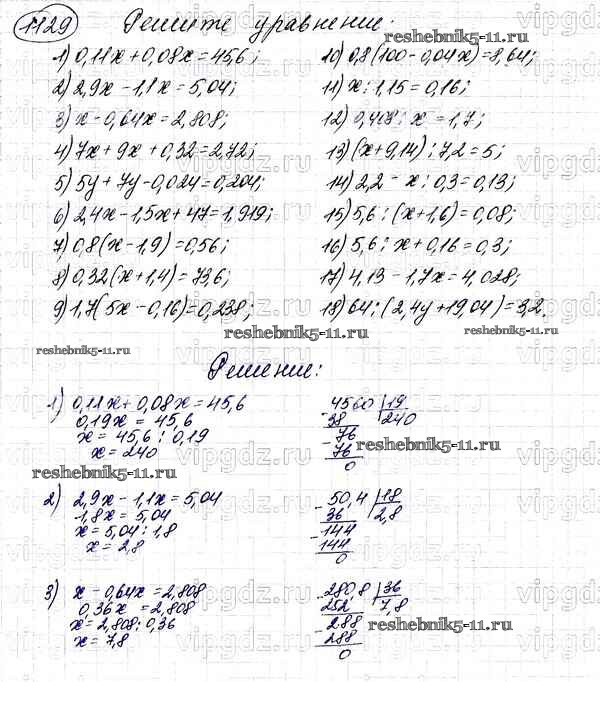 1129 Решите уравнение:
1) 0,11x + 0,08x = 45,6;
2) 2,9x - 1,1x = 5,04;
3) x - 0,64x = 2,808;
4) 7x + 9x + 0,32 = 2,72;
5) 5y + 7y - 0,024 = 0,204;
6) 2,4x - 1,5x + 47 = 1,919;
7) 0,8(x - 1,9) = 0,56;
8) 0,32(x + 1,4) = 73,6;
9) 1,7(5x - 0,16) = 0,238;
reshebnik5-11.ru
10) 0,8(100 - 0,04x) = 8,64;
11) x : 1,15 = 0,16;
12) 0,408 : x = 1,7;
13) (x + 9,14) : 7,2 = 5;
14) 2,2 - x : 0,3 = 0,13;
15) 5,6 : (x + 1,6) = 0,08;
16) 5,6 : x + 0,16 = 0,3;
17) 4,13 - 1,7x = 4,028;
18) 64 : (2,4y + 19,04) = 3,2.
reshebnik5-11.ru
reshebnik5-11.ru
reshebnik5-11.ru
Решение:
1) 0,11x + 0,08x = 45,6
0,19x = 45,6
x = 45,6 : 0,19
x = 240
4560 | 19
38 240
76
76
0
reshebnik5-11.ru
reshebnik5-11.ru
2) 2,9x - 1,1x = 5,04
1,8x = 5,04
x = 5,04 : 1,8
x = 2,8
50,4 | 18
36 2,8
144
144
0
3) x - 0,64x = 2,808
0,36x = 2,808
x = 2,808 : 0,36
x = 7,8
280,8 | 36
252 7,8
288
288
0
reshebnik5-11.ru